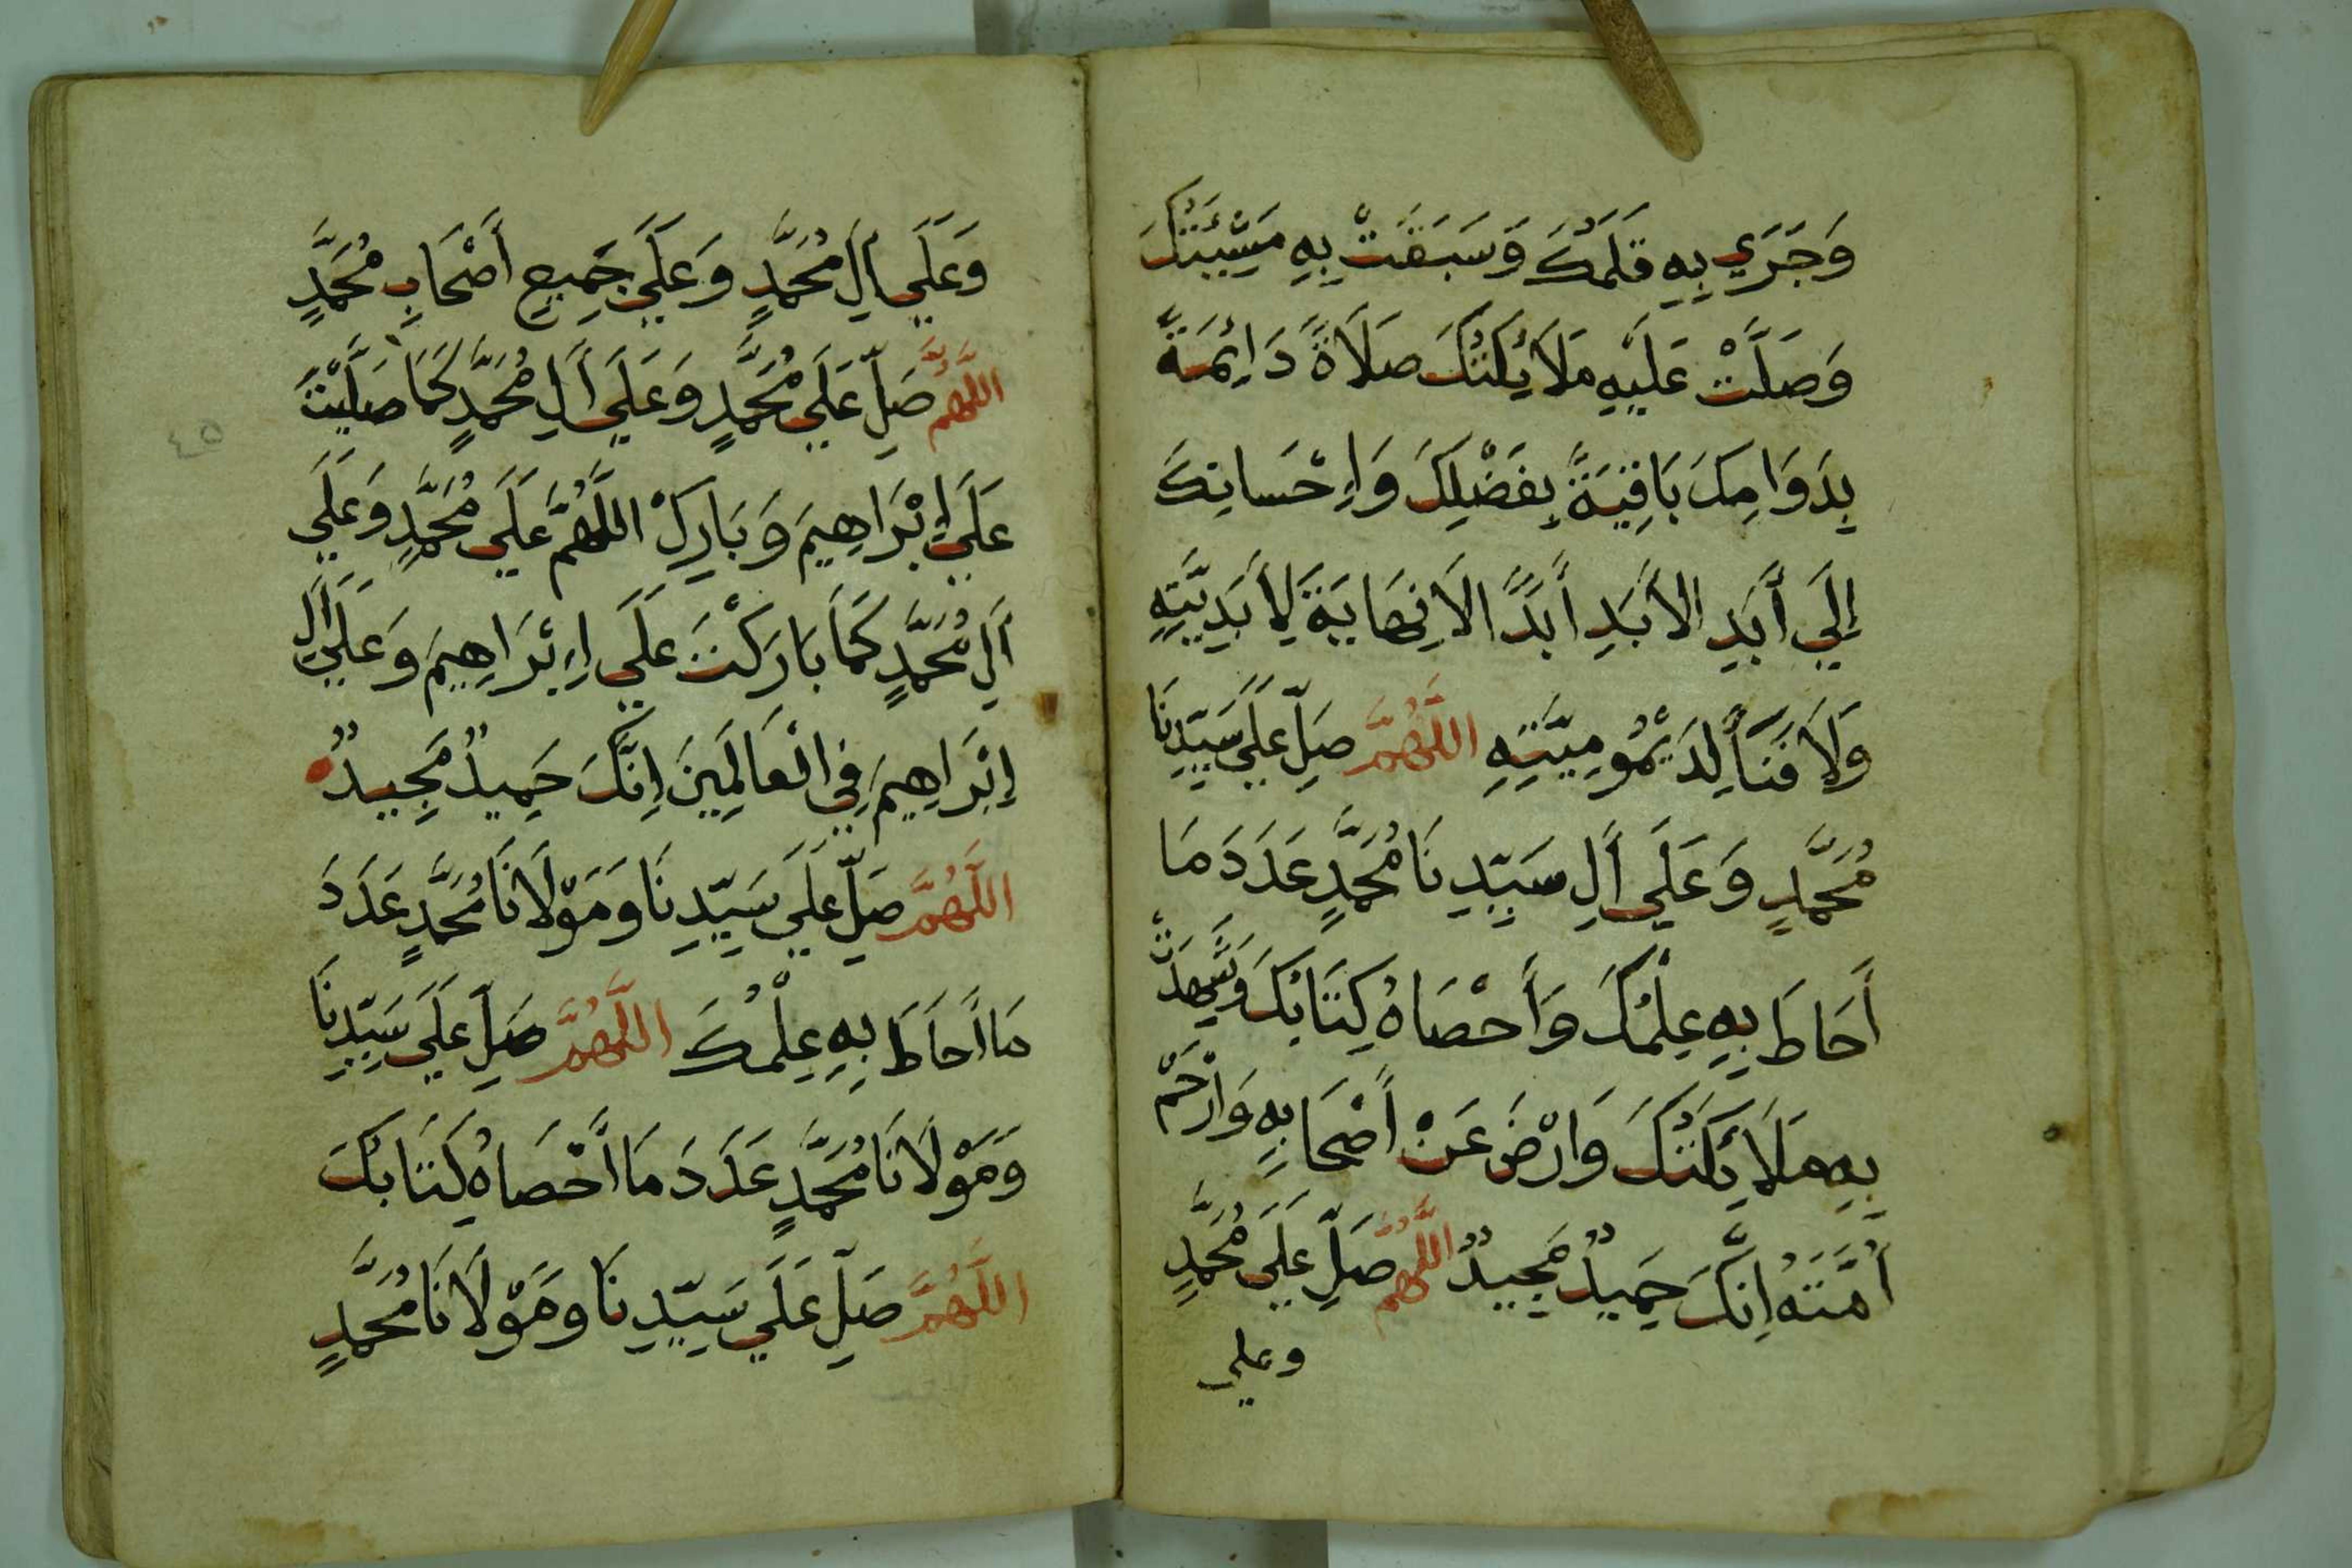 وَجَرَي بِهِ قَلَمُكَ وَسَبَقَتْ بِهِ مَشْيَئَتُكَ
وَصَلَّتْ عَلَيْهِ مَلَائِكَتُكَ صَلَاةً دَائِمَةً
بِدَوَامِكَ بَاقِيَةً بِفَضْلِكَ وَإِحْسَانِكَ
إِلَي أَبَدِ الأَبَدِ أَبَدًا لاَنِهَايَةَ لِأَبَدِيَّتِهِ
وَلَا فَنَأَ لِدَيْمُومِيَّتِهِ اللَّهُمَّ صَلِّ عَلَي سَيِّدِنَا
مُحَمَّدٍ وَعَلَي أَلِ سَيِّدِنَا مُحَمَّدٍ عَدَدَ مَا
أَحَاطَ بِهِ عِلْمُكَ وَأَحْصَاهُ كِتَابُكَ وَشَهِدَتْ
بِهِ مَلَائِكَتُكَ وَارْضَ عَنْ أَصْحَابِهِ وَارْحَمْ
أُمَّتَهُ اِنَّكَ حَمِيدٌ مَجِيدٌ اللَّهُمَّ صَلِّ عَلَي مُحَمَّدٍ
وعلي
وَعَلَي أَلِ مُحَمَّدٍ وَعَلَي جَمِيعِ أَصْحَابِ مُحَمَّدٍ
اللَّهُمَّ صَلِّ عَلَي مُحَمَّدٍ وَعَلَي أَلِ مُحَمَّدٍ كَمَا صَلَّيْتَ
٤٥
عَلَي إِبْرَاهِيمَ وَبَارِكْ اللَّهُمَّ عَلَي مُحَمَّدٍ وَعَلَي
أَلِ مُحَمَّدٍ كَمَا بَارَكْتَ عَلَي اِبْرَاهِيمَ وَعَلَي أَلِ
إِبْرَاهِيمَ فِي الْعَالَمِينَ اِنَّكَ حَمِيدٌ مَجِيدٌ
اللَّهُمَّ صَلِّ عَلَي سَيِّدِنَا وَمَوْلَانَا مُحَمَّدٍ عَدَدَ
مَا أَحَاطَ بِهِ عِلْمُكَ اللَّهُمَّ صَلِّ عَلَي سَيِّدِنَا
وَمَوْلَانَا مُحَمَّدٍ عَدَدَ مَا أَحْصَاهُ كِتَابُكَ
اللَّهُمَّ صَلِّ عَلَي سَيِّدِنَا وَمَوْلَانَا مُحَمَّدٍ